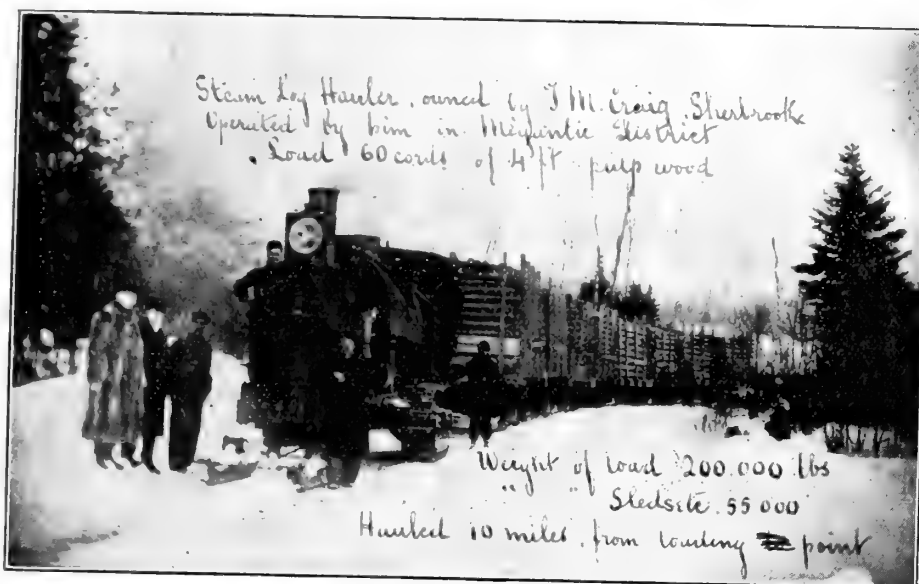 Steam Log Hauler, owned by T M. Craig, Sherbrooke
Operated by him in Megantic District
. Load 60 cords of 4 ft pulp wood
Weight of load 200.000 lbs
" " Sleds etc. 55 000
Hauled 10 miles, from loading point